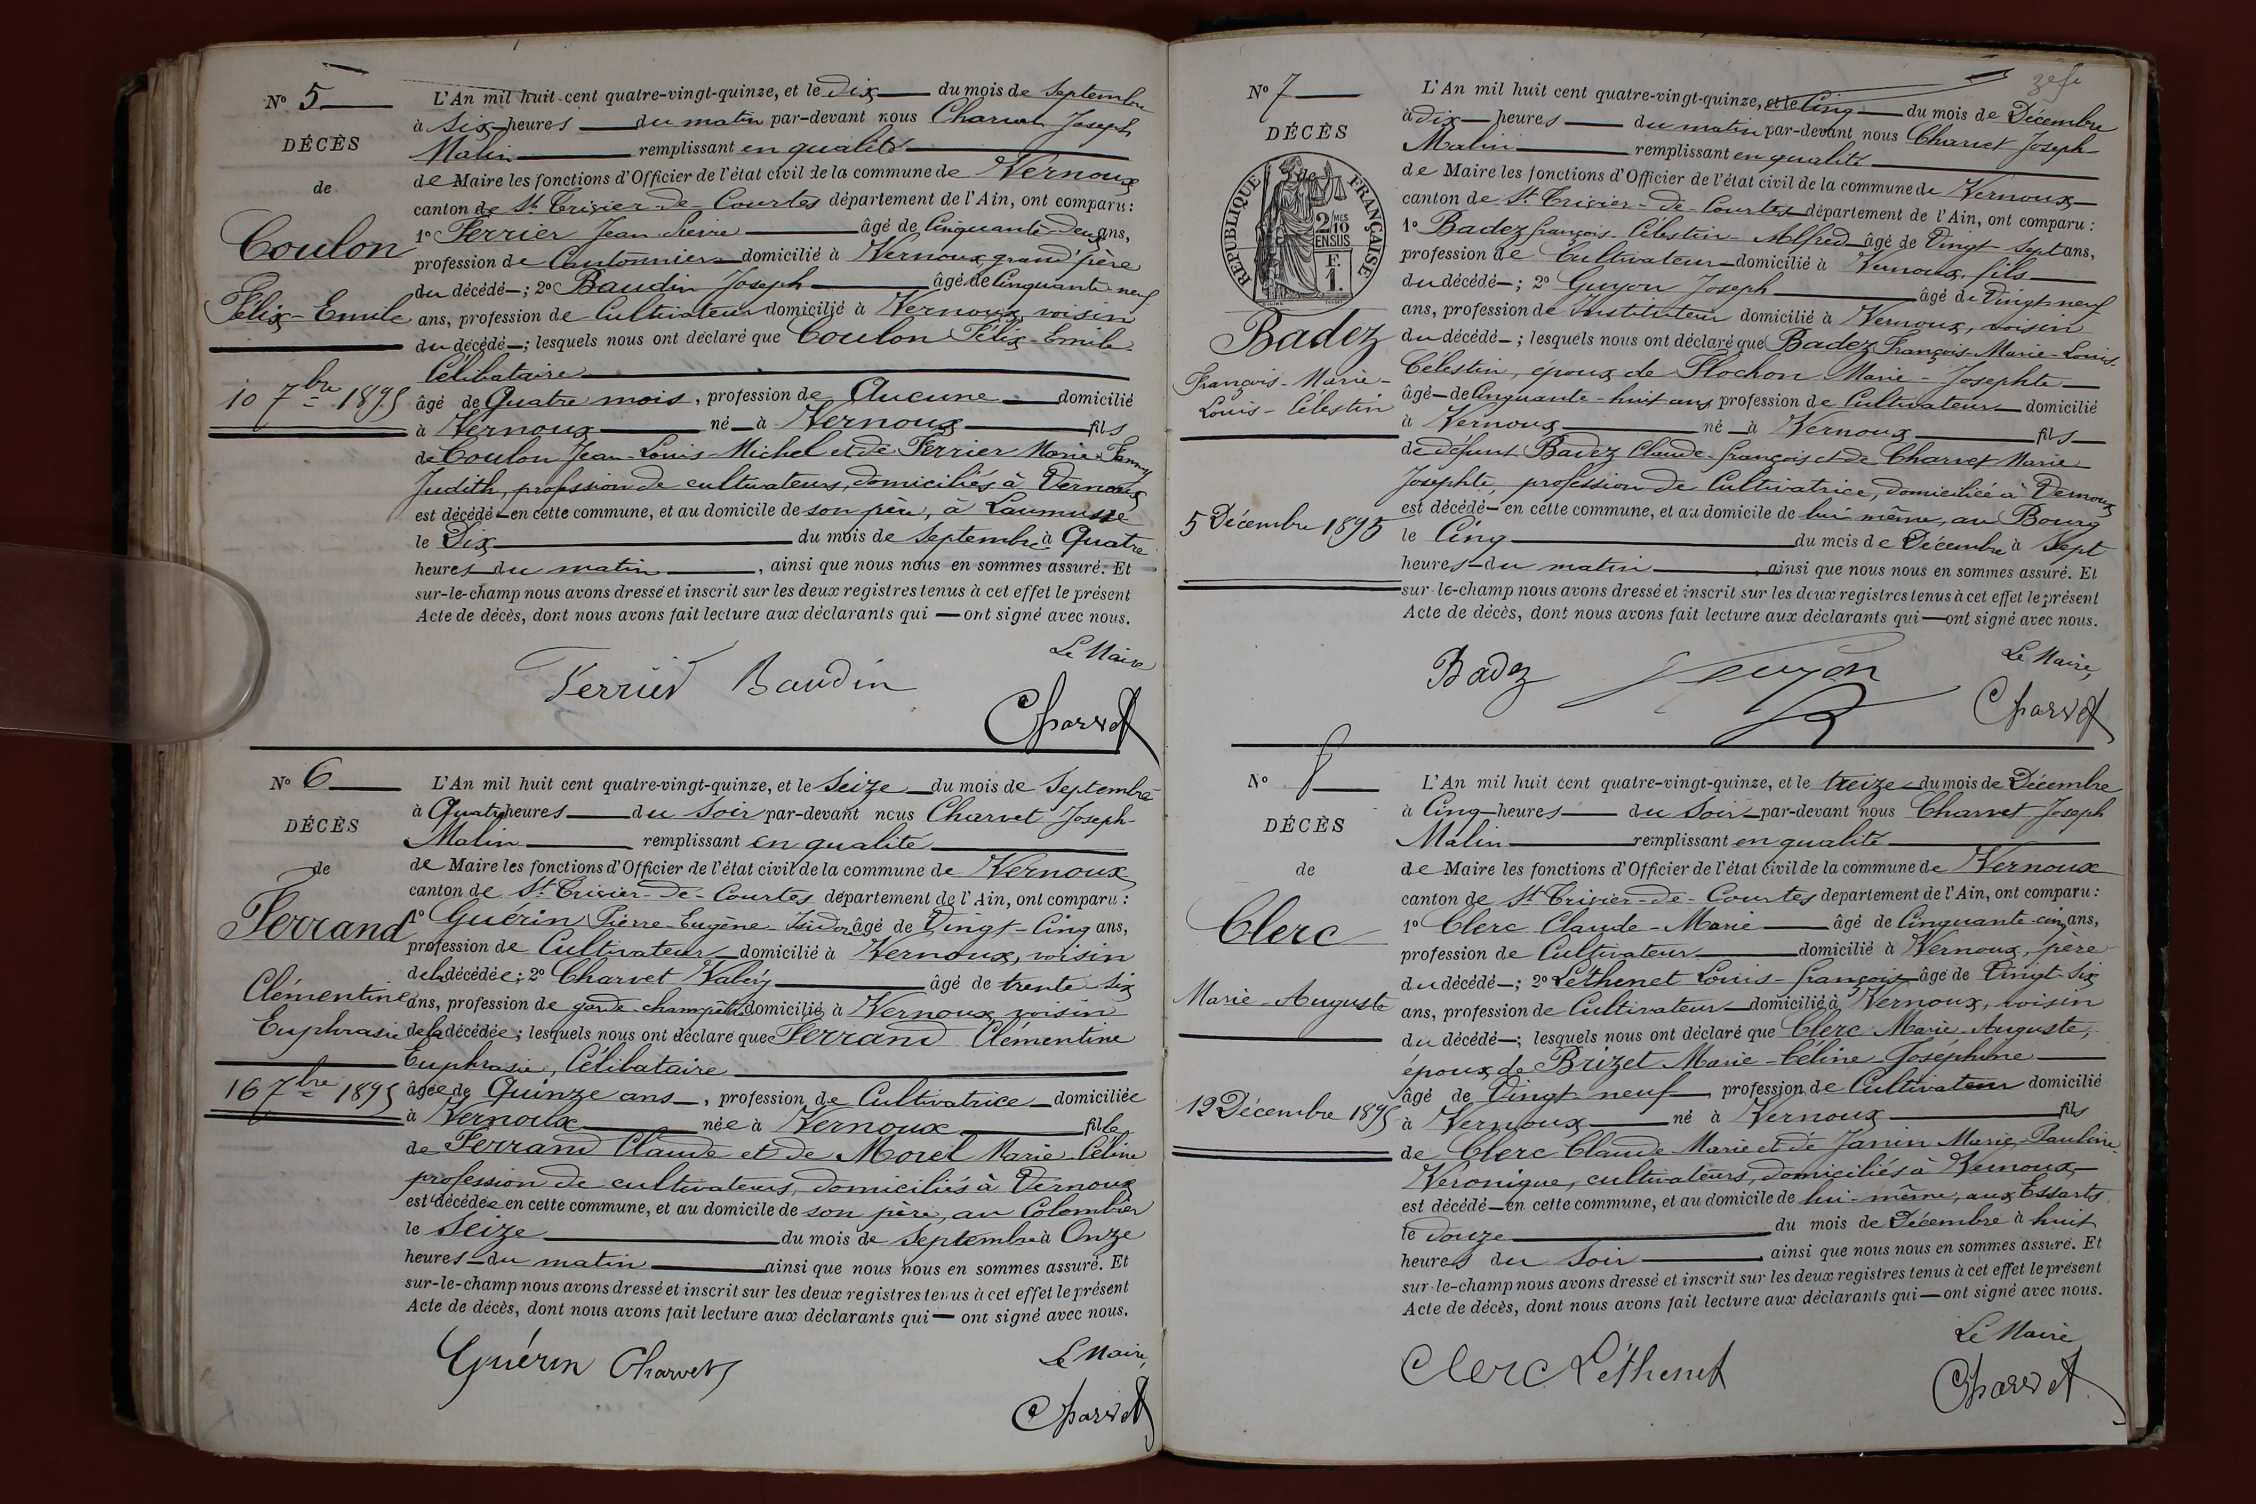 N° 5
DÉCÈS
de
Coulon
Félix-Emile
10 7bre 1895
L'An mil huit cent quatre-vingt-quinze, et le dix du mois de Septembre
à Six heures du matin par-devant nous Charvet Joseph
Malin remplissant en qualité
de Maire les fonctions d'Officier de l'état civil de la commune de Vernoux
canton de St Trivier-de-Courtes département de l'Ain, ont comparu :
1° Ferrier Jean Pierre âgé de Cinquante-Deux ans,
profession de Cantonnier domicilié à Vernoux, grand'père
du décédé ; 2° Baudin Joseph âgé de Cinquante neuf
ans, profession de Cultivateur domicilié à Vernoux, voisin
du décédé ; lesquels nous ont déclaré que Coulon Félix-Emile
Célibataire
âgé de Quatre mois, profession de Aucune domicilié
à Vernoux né à Vernoux fils
de Coulon Jean-Louis-Michel et de Ferrier Marie-Fanny
Judith, profession de cultivateurs, domiciliés à Vernoux
est décédé en cette commune, et au domicile de son père, à Laumusse
le Dix du mois de Septembre à Quatre
heures du matin, ainsi que nous nous en sommes assuré. Et
sur-le-champ nous avons dressé et inscrit sur les deux registres tenus à cet effet le présent
Acte de décès, dont nous avons fait lecture aux déclarants qui ont signé avec nous.
Le Maire
Ferrier Baudin
Charvet
N° 6
DÉCÈS
de
Ferrand
Clémentine
Euphrasie
16 7bre 1895
L'An mil huit cent quatre-vingt-quinze, et le Seize du mois de Septembre
à Quatre heures du Soir par-devant nous Charvet Joseph-
Malin remplissant en qualité
de Maire les fonctions d'Officier de l'état civil de la commune de Vernoux
canton de St Trivier-de-Courtes département de l'Ain, ont comparu :
1° Guérin Pierre-Eugène-Isidore âgé de Vingt-Cinq ans,
profession de Cultivateur domicilié à Vernoux, voisin
de la décédée ; 2° Charvet Valéry âgé de trente-six
ans, profession de garde-champêtre domicilié à Vernoux, voisin
de la décédée ; lesquels nous ont déclaré que Ferrand Clémentine
Euphrasie, Célibataire
âgée de Quinze ans, profession de Cultivatrice domiciliée
à Vernoux née à Vernoux fille
de Ferrand Claude et de Morel Marie-Céline
profession de cultivateurs, domiciliés à Vernoux
est décédée en cette commune, et au domicile de son père, au Colombier
le Seize du mois de Septembre à Onze
heures du matin ainsi que nous nous en sommes assuré. Et
sur-le-champ nous avons dressé et inscrit sur les deux registres tenus à cet effet le présent
Acte de décès, dont nous avons fait lecture aux déclarants qui ont signé avec nous.
Le Maire,
Guérin Charvet
Charvet
N° 7
DÉCÈS
de
RÉPUBLIQUE FRANÇAISE
2/10 MES
EN SUS
F.
1.
Badez
François-Marie-
Louis-Célestin
5 Décembre 1895
L'An mil huit cent quatre-vingt-quinze, et le Cinq du mois de Décembre
à dix heures du matin par-devant nous Charvet Joseph-
Malin remplissant en qualité
de Maire les fonctions d'Officier de l'état civil de la commune de Vernoux
canton de St Trivier-de-Courtes département de l'Ain, ont comparu :
1° Badez François-Célestin-Alfred âgé de Vingt-Sept ans,
profession de Cultivateur domicilié à Vernoux, fils
du décédé ; 2° Guyon Joseph âgé de Vingt-neuf
ans, profession de Instituteur domicilié à Vernoux, voisin
du décédé ; lesquels nous ont déclaré que Badez François-Marie-Louis-
Célestin, époux de Plochon Marie-Josephte
âgé de Cinquante-huit ans profession de Cultivateur domicilié
à Vernoux né à Vernoux fils
de défunt Badez Claude-François et de Charvet Marie
Josephte, profession de Cultivatrice, domiciliée à Vernoux
est décédé en cette commune, et au domicile de lui même, au Bourg
le Cinq du mois de Décembre à Sept
heures du matin, ainsi que nous nous en sommes assuré. Et
sur-le-champ nous avons dressé et inscrit sur les deux registres tenus à cet effet le présent
Acte de décès, dont nous avons fait lecture aux déclarants qui ont signé avec nous.
Le Maire,
Badez Guyon
Charvet
N° 8
DÉCÈS
de
Clerc
Marie-Auguste
12 Décembre 1895
L'An mil huit cent quatre-vingt-quinze, et le treize du mois de Décembre
à Cinq heures du Soir par-devant nous Charvet Joseph
Malin remplissant en qualité
de Maire les fonctions d'Officier de l'état civil de la commune de Vernoux
canton de St Trivier-de-Courtes département de l'Ain, ont comparu :
1° Clerc Claude-Marie âgé de Cinquante-cinq ans,
profession de Cultivateur domicilié à Vernoux, père
du décédé ; 2° Léthenet Louis-François âgé de Vingt-Six
ans, profession de Cultivateur domicilié à Vernoux, voisin
du décédé ; lesquels nous ont déclaré que Clerc Marie-Auguste,
époux de Brizet Marie-Céline-Joséphine
âgé de Vingt-neuf, profession de Cultivateur domicilié
à Vernoux né à Vernoux fils
de Clerc Claude-Marie et de Janin Marie-Pauline-
Véronique, cultivateurs, domiciliés à Vernoux,
est décédé en cette commune, et au domicile de lui-même, aux Essarts
le douze du mois de Décembre à huit
heures du Soir, ainsi que nous nous en sommes assuré. Et
sur-le-champ nous avons dressé et inscrit sur les deux registres tenus à cet effet le présent
Acte de décès, dont nous avons fait lecture aux déclarants qui ont signé avec nous.
Le Maire
Clerc Léthenet
Charvet